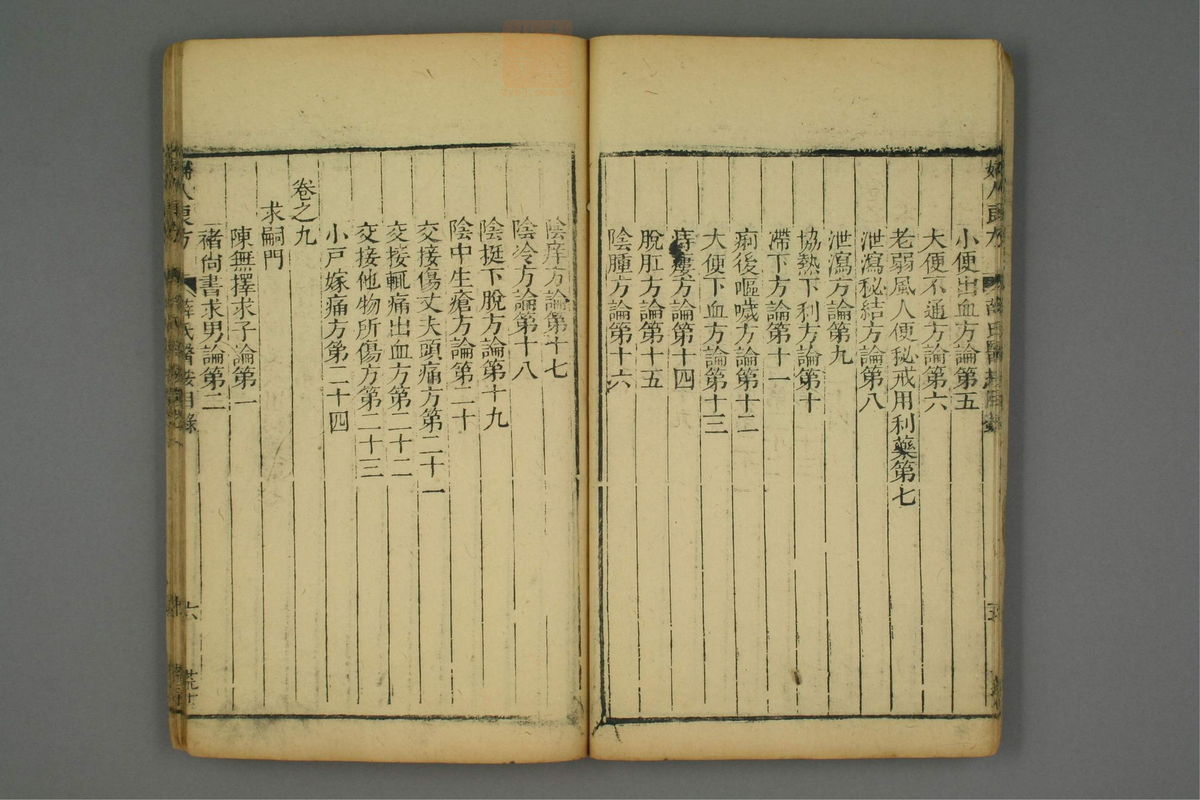 婦人良方
小便出血方論第五
大便不通方論第六
老弱風人便秘戒用利藥第七
泄瀉秘結方論第八
泄瀉方論第九
協熱下利方論第十
滯下方論第十一
痢後嘔噦方論第十二
大便下血方論第十三
痔瘻方論第十四
脫肛方論第十五
陰腫方論第十六
陰痒方論第十七
陰冷方論第十八
陰挺下脫方論第十九
陰中生瘡方論第二十
交接傷丈夫頭痛方第二十一
交接輒痛出血方第二十二
交接他物所傷方第二十三
小戶嫁痛方第二十四
卷之九
求嗣門
陳無擇求子論第一
褚尙書求男論第二
婦人良方
薛氏醫按目錄
六